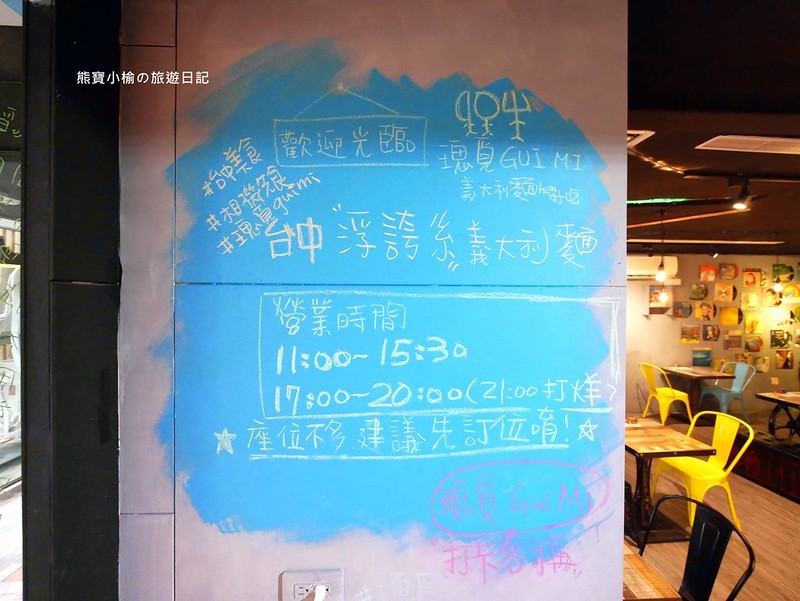 熊寶小榆の旅遊日記
歡迎光臨
瓌覓GUI MI
#台中美食
#相機食
#瓌覓guimi
台中"浮誇系"義大利麵
營業時間
11:00~15:30
17:00~20:00(21:00打烊)
☆座位不多建議先訂位唷!☆
瓌覓 Gui Mi
"打卡名稱"